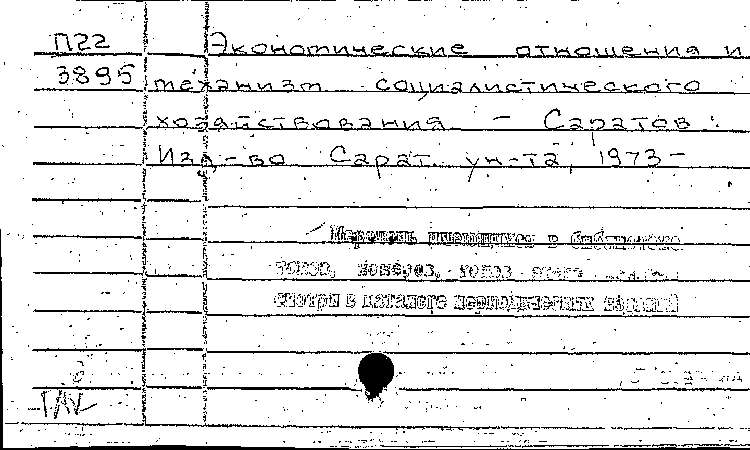 П22
3895
Экономические отношения и
механизм социалистического
хозяйствования - Саратов:
Изд-во Сарат. ун-та, 1973-
Перечень имеющихся в библиотеке
томов, номеров, годов этого
смотри в каталоге периодических изданий